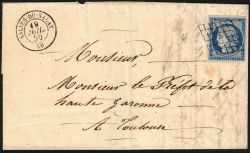 SALIES-DU-SALAT
19
JUIL.
50
Monsieur
Monsieur le Préfet de la
haute Garonne
A Toulouse